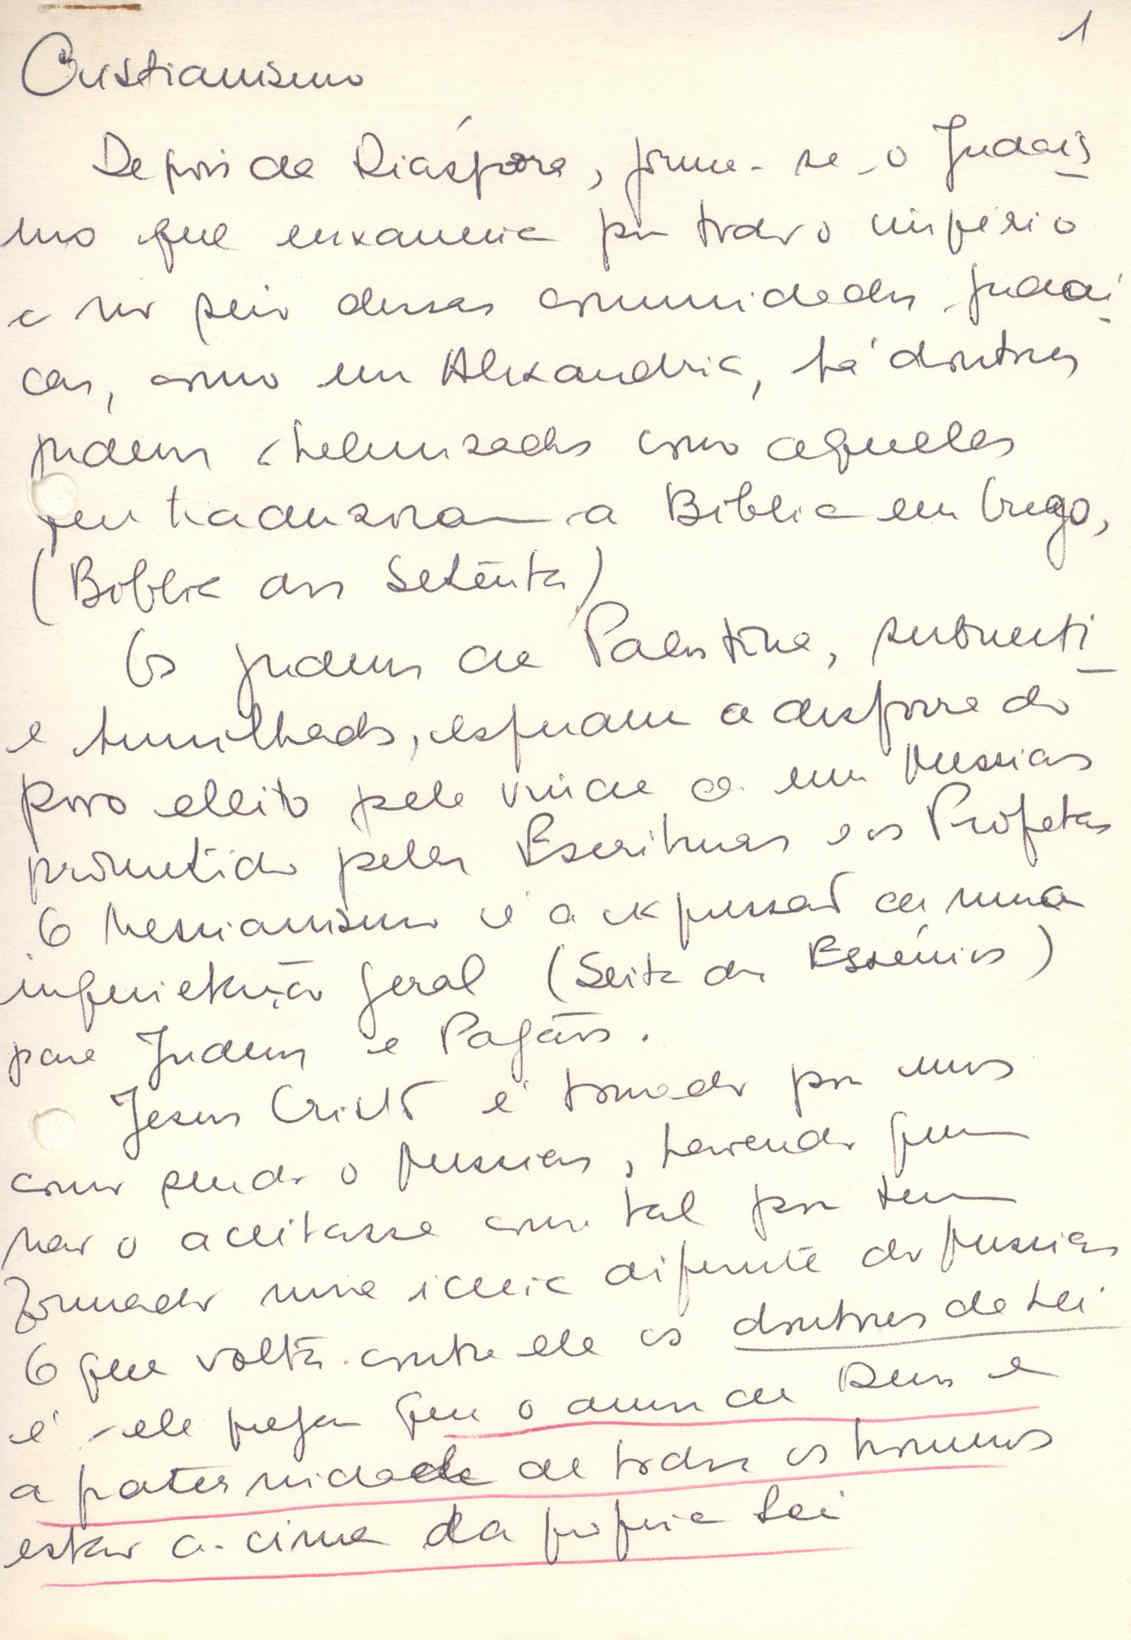 1
Cristianismo
Depois da Diáspora, forma-se o Judaís
mo que enxameia por todo o império
e no seio dessas comunidades judai
cas, como em Alexandria, há doutores
judeus helenizados como aqueles
que traduziram a Biblia em Grego,
(Biblia dos Setenta)
Os judeus da Palestina,
e humilhados, esperam a desforra do
povo eleito pela vinda de um Messias
prometido pelas Escrituras e os Profetas
O Messianismo é a expressão de uma
inquietação geral (Seita dos Essénios)
para Judeus e Pagãos.
Jesus Cristo é tomado por uns
como sendo o Messias, havendo quem
não o aceitasse como tal por terem
formado uma ideia diferente do Messias
O que volta contra ele os doutores da Lei
é ele pregar que o amor de Deus e
a paternidade de todos os homens
estão acima da própria Lei